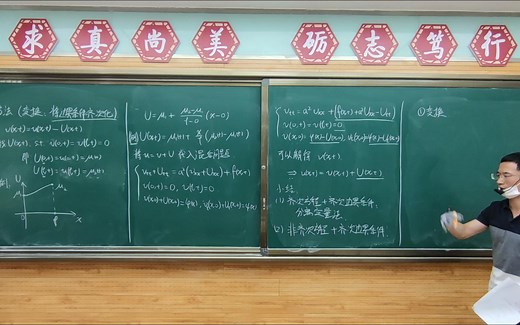 求真尚美 励志笃行
方法（变换：使边界条件齐次化）
v(x,t)=u(x,t)-U(x,t)
U(x,t), s.t. v(0,t)=v(l,t)=0
即 U(0,t)=u(0,t)=μ₁(t)
U(l,t)=u(l,t)=μ₂(t)
μ₁
μ₂
U
0
l
x
U=μ₁+\frac{μ₂-μ₁}{l-0}(x-0)
U(x,t)=μ₁(t)+\frac{x}{l}(μ₂(t)-μ₁(t))
将u=v+U代入混合问题
v_tt+U_tt=a²(v_xx+U_xx)+f(x,t)
v(0,t)=0, v(l,t)=0
v(x,0)+U(x,0)=φ(x), v_t(x,0)+U_t(x,0)=ψ(x)
v_tt=a²v_xx+f(x,t)+a²U_xx-U_tt
v(0,t)=v(l,t)=0
v(x,0)=φ(x)-U(x,0), v_t(x,0)=ψ(x)-U_t(x,0)
可以解得 v(x,t)
⇒ u(x,t)=v(x,t)+U(x,t)
小结：
(1) 齐次方程+齐次边界条件，
分离变量法
(2) 非齐次方程+齐次边界条件
①变换